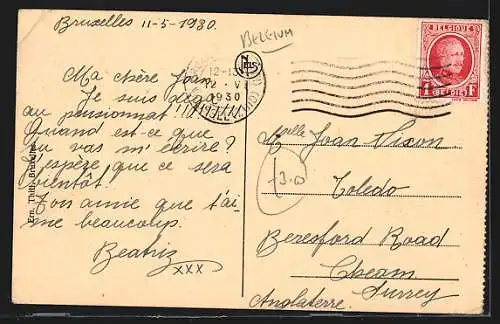 Bruxelles 11-5-1930.
BELGIUM
Nels
12-V
1930
BELGIQUE
1 F 1 F
BELGIË
Ma chère Joan
Je suis déjà
au pensionnat.
Quand est-ce que
tu vas m'écrire?
J'espère que ce sera
bientôt!
Ton amie que t'ai-
me beaucoup.
Beatriz
xxx
Ern. Thill, Bruxelles
Melle Joan Vixon
Toledo
Beresford Road
Cheam
Surrey
Angleterre.